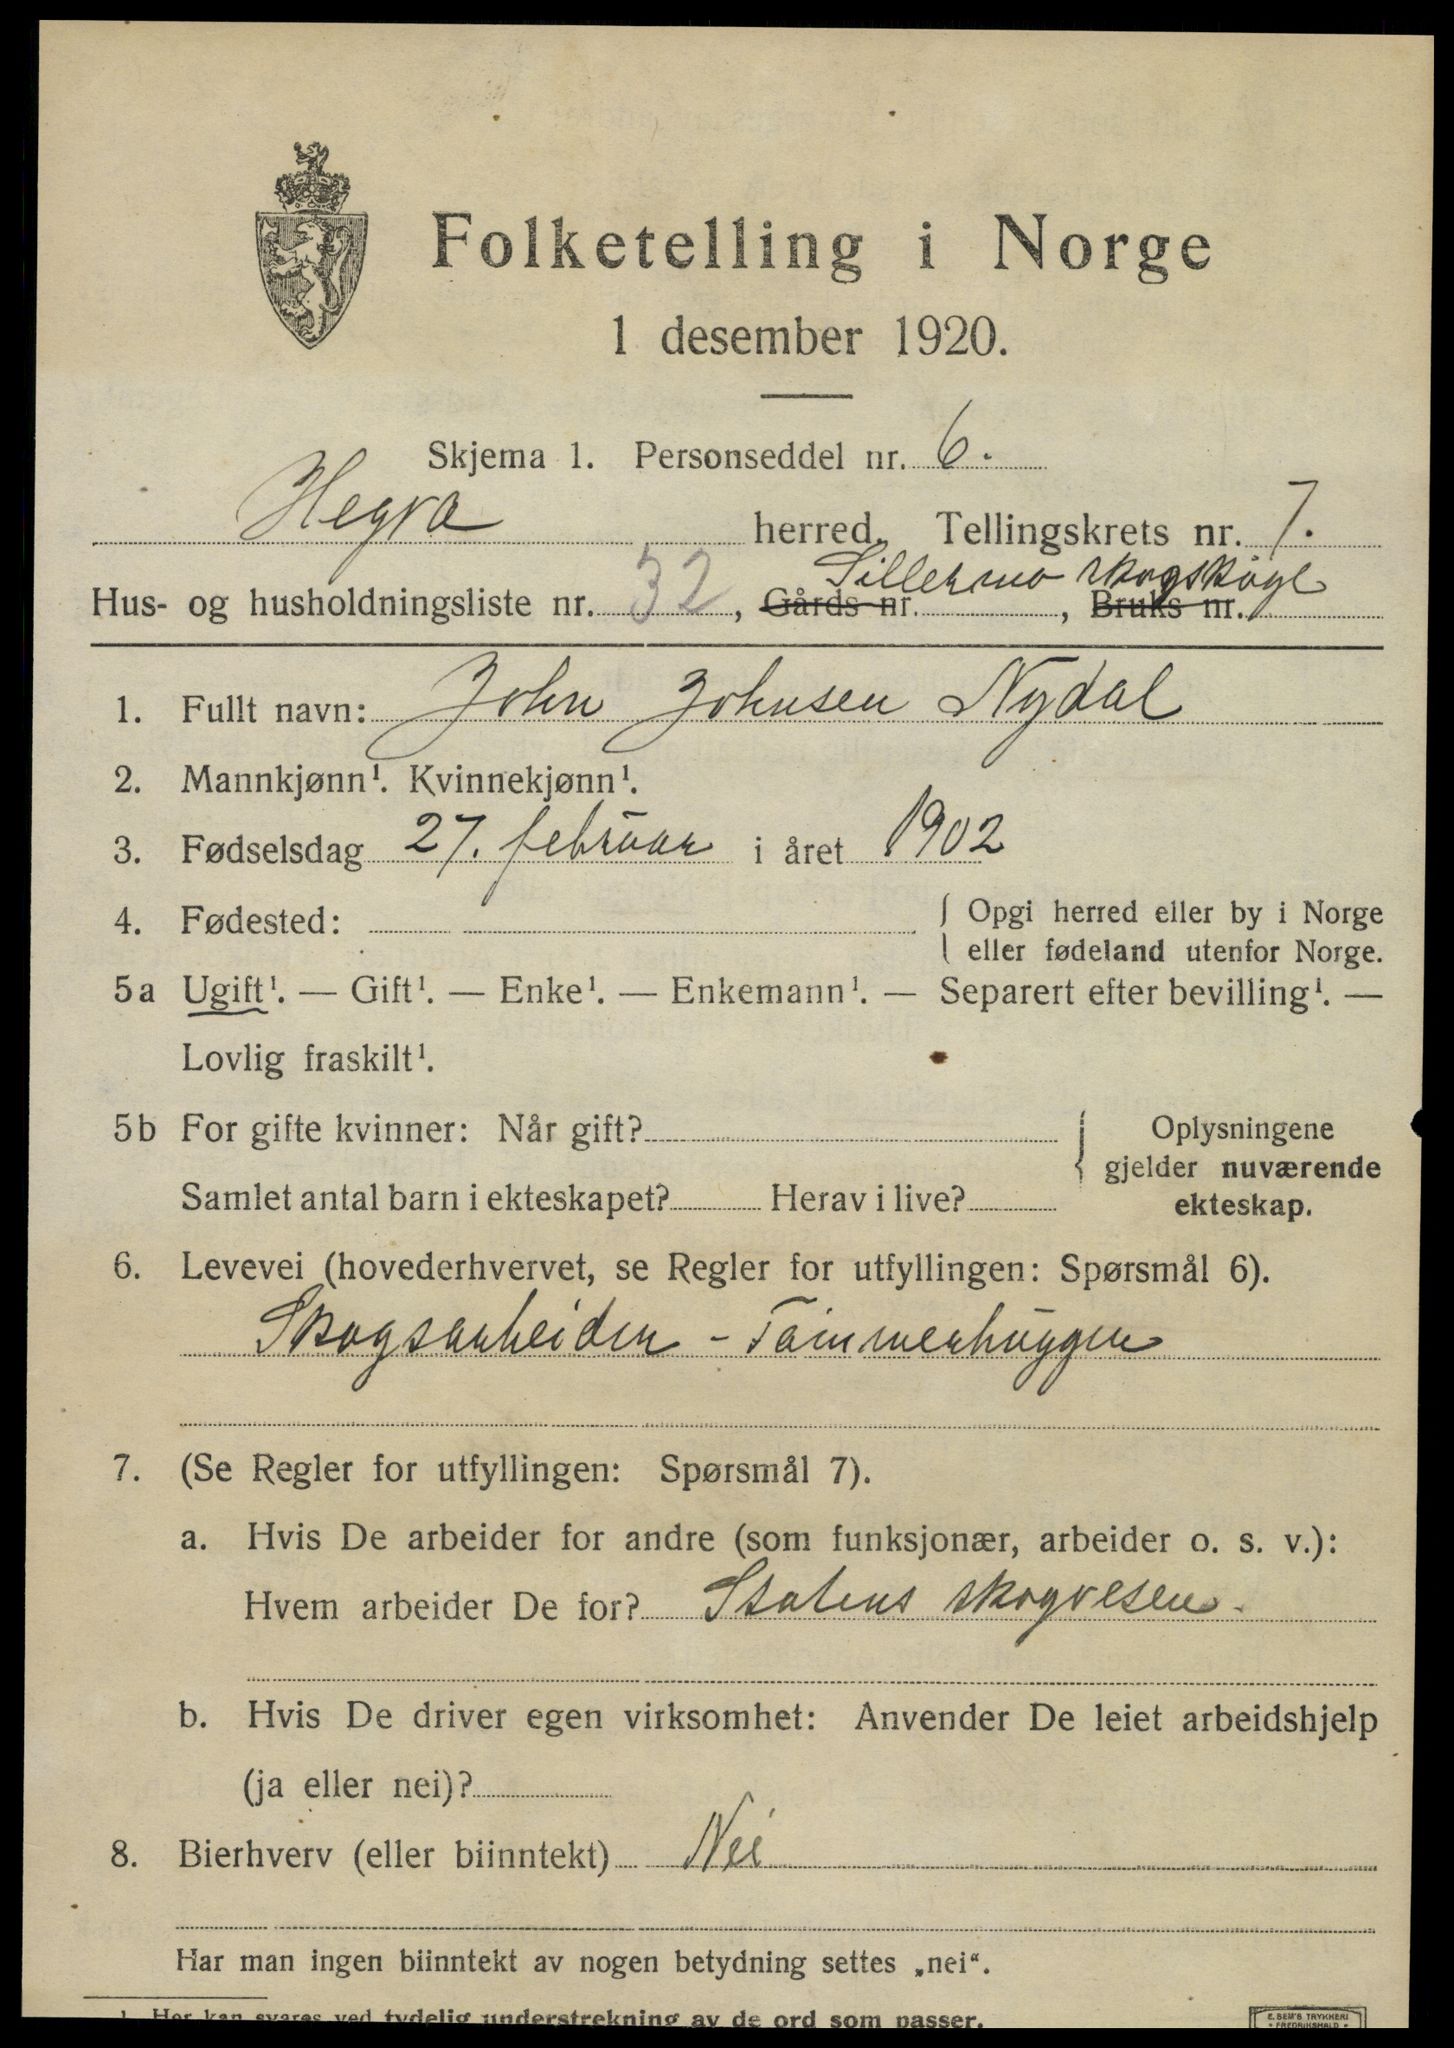 Folketelling i Norge
1 desember 1920.
Skjema 1. Personseddel nr. 6.
Hegra herred. Tellingskrets nr. 7.
Sillermo skogskoge
Hus- og husholdningsliste nr. 32, Gårds nr. , Bruks nr.
1. Fullt navn: John Johnsen Nydal
2. Mannkjønn¹. Kvinnekjønn¹.
3. Fødselsdag 27. februar i året 1902
4. Fødested: { Opgi herred eller by i Norge
eller fødeland utenfor Norge.
5a Ugift¹. — Gift¹. — Enke¹. — Enkemann¹. — Separert efter bevilling¹. —
Lovlig fraskilt¹.
5b For gifte kvinner: Når gift? { Oplysningene
gjelder nuværende
Samlet antal barn i ekteskapet? Herav i live? ekteskap.
6. Levevei (hovederhvervet, se Regler for utfyllingen: Spørsmål 6).
Skogsarbeider - Tømmerhugger
7. (Se Regler for utfyllingen: Spørsmål 7).
a. Hvis De arbeider for andre (som funksjonær, arbeider o. s. v.):
Hvem arbeider De for? Statens skogvesen.
b. Hvis De driver egen virksomhet: Anvender De leiet arbeidshjelp
(ja eller nei)?
8. Bierhverv (eller biinntekt) Nei
Har man ingen biinntekt av nogen betydning settes „nei“.
¹ Her kan svares ved tydelig understrekning av de ord som passer.
E. SEM'S TRYKKERI
FREDRIKSHALD